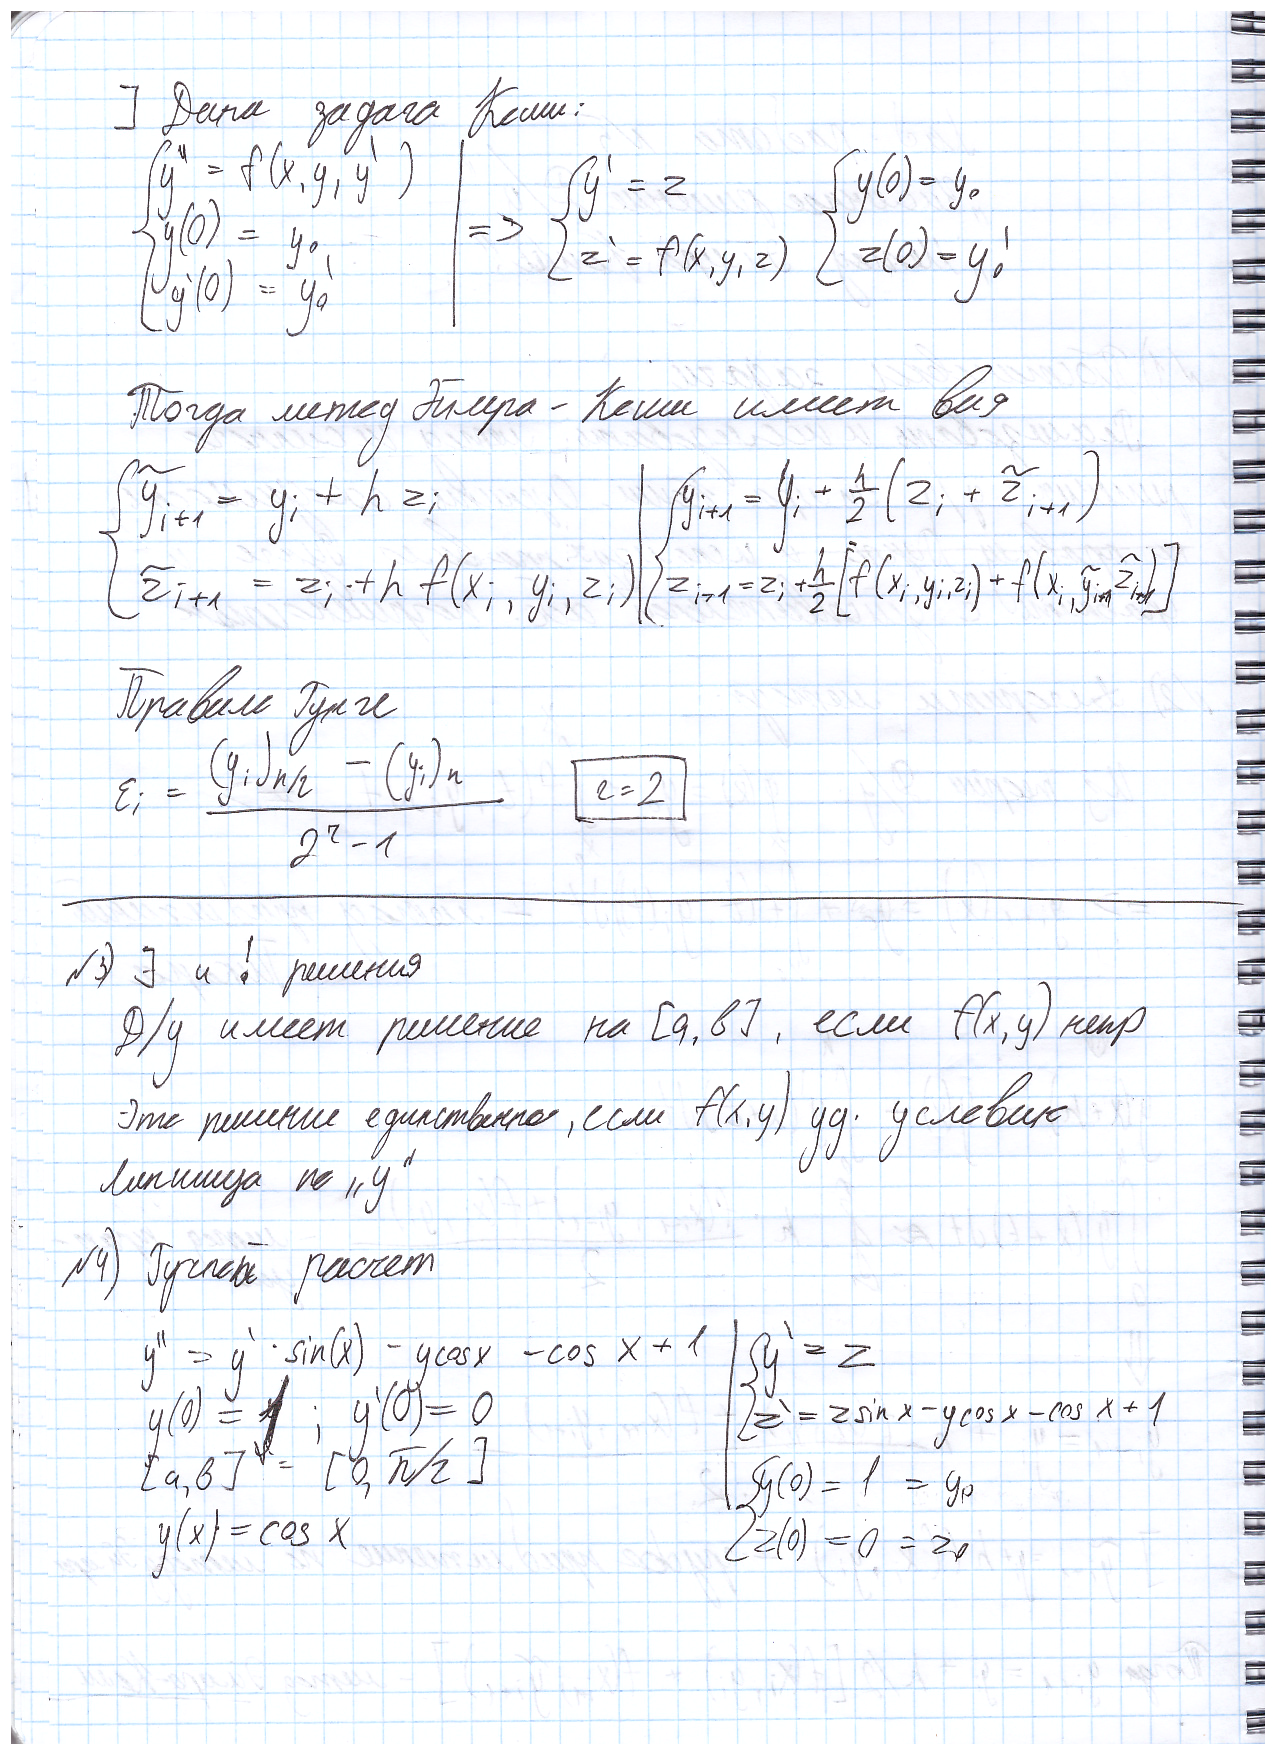 ] Дана задача Коши:
{ y'' = f(x, y, y') | => { y' = z { y(0) = y₀
y(0) = y₀, z' = f(x, y, z) z(0) = y₀'
y'(0) = y₀'
Тогда метод Эйлера - Коши имеет вид
{ ỹᵢ₊₁ = yᵢ + h zᵢ | { yᵢ₊₁ = yᵢ + h/2 (zᵢ + z̃ᵢ₊₁)
z̃ᵢ₊₁ = zᵢ + h f(xᵢ, yᵢ, zᵢ) | zᵢ₊₁ = zᵢ + h/2 [f(xᵢ, yᵢ, zᵢ) + f(xᵢ, ỹᵢ₊₁ z̃ᵢ₊₁)]
Правило Рунге
εᵢ = ((yᵢ)h/2 − (yᵢ)h) / (2^r − 1) r = 2
№3) ∃ и ! решения
Д/у имеет решение на [a, b], если f(x, y) непр
Это решение единственно, если f(x, y) уд. условию
Липшица по „y"
№4) Ручной расчет
y'' = y' · sin(x) − y cos x − cos x + 1 | { y' = z
y(0) = 1 ; y'(0) = 0 z' = z sin x − y cos x − cos x + 1
[a, b] = [0, π/2] { y(0) = 1 = y₀
y(x) = cos x z(0) = 0 = z₀